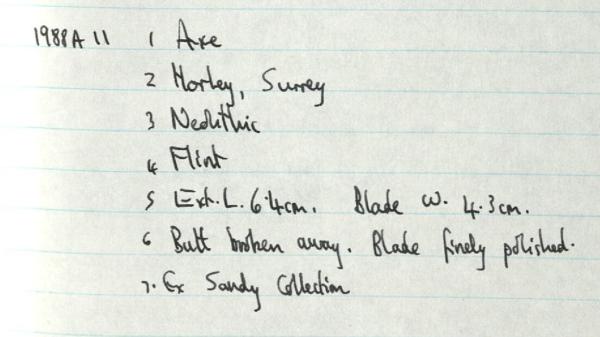 1988A 11 1 Axe
2 Horley, Surrey
3 Neolithic
4 Flint
5 Ext. L. 6.4cm. Blade w. 4.3cm.
6 Butt broken away. Blade finely polished.
7. Ex Sandy Collection